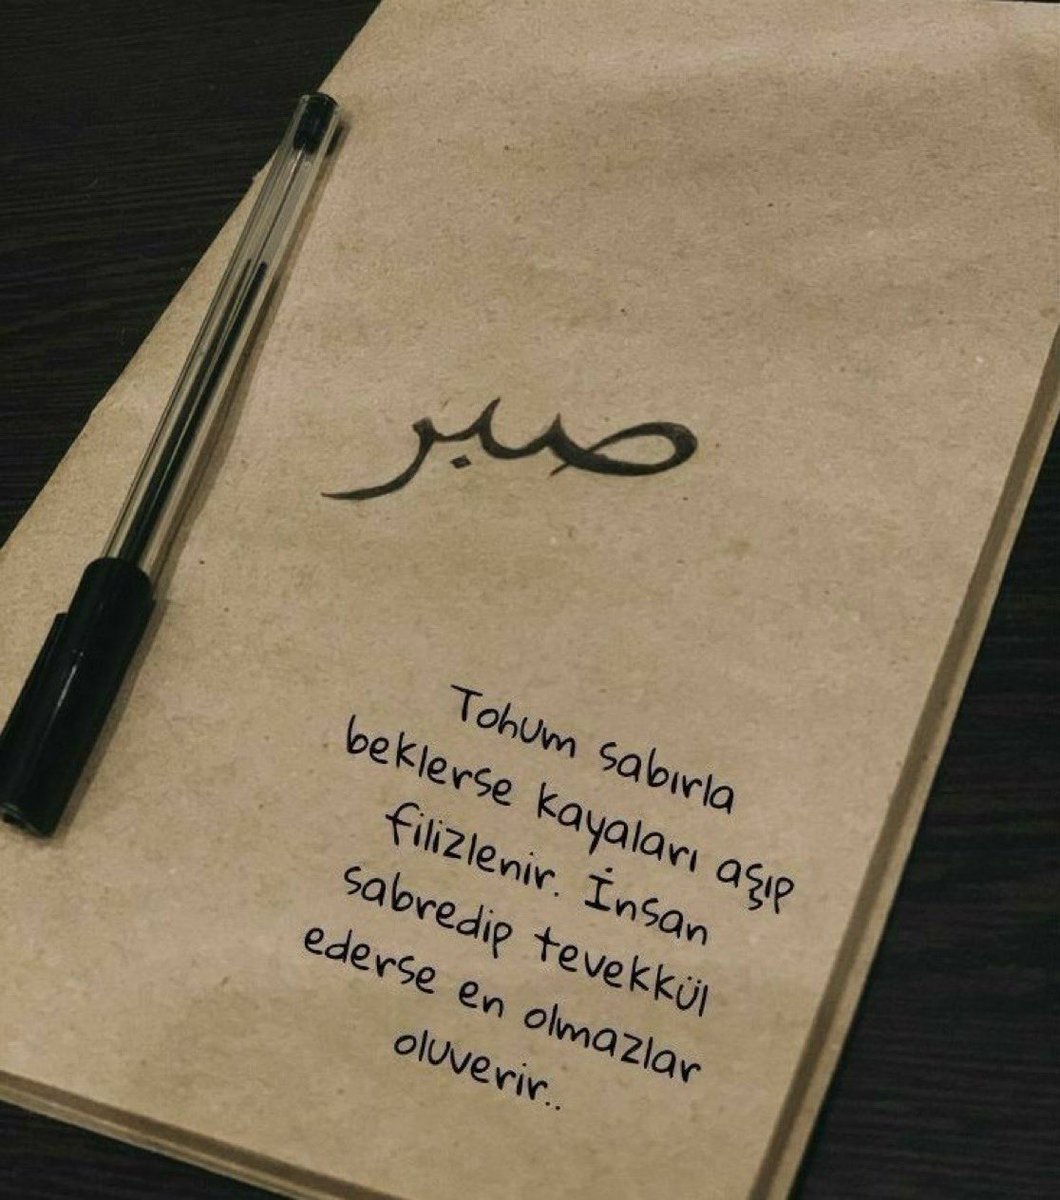 صبر
Tohum sabırla
beklerse kayaları aşıp
filizlenir. İnsan
sabredip tevekkül
ederse en olmazlar
oluverir..